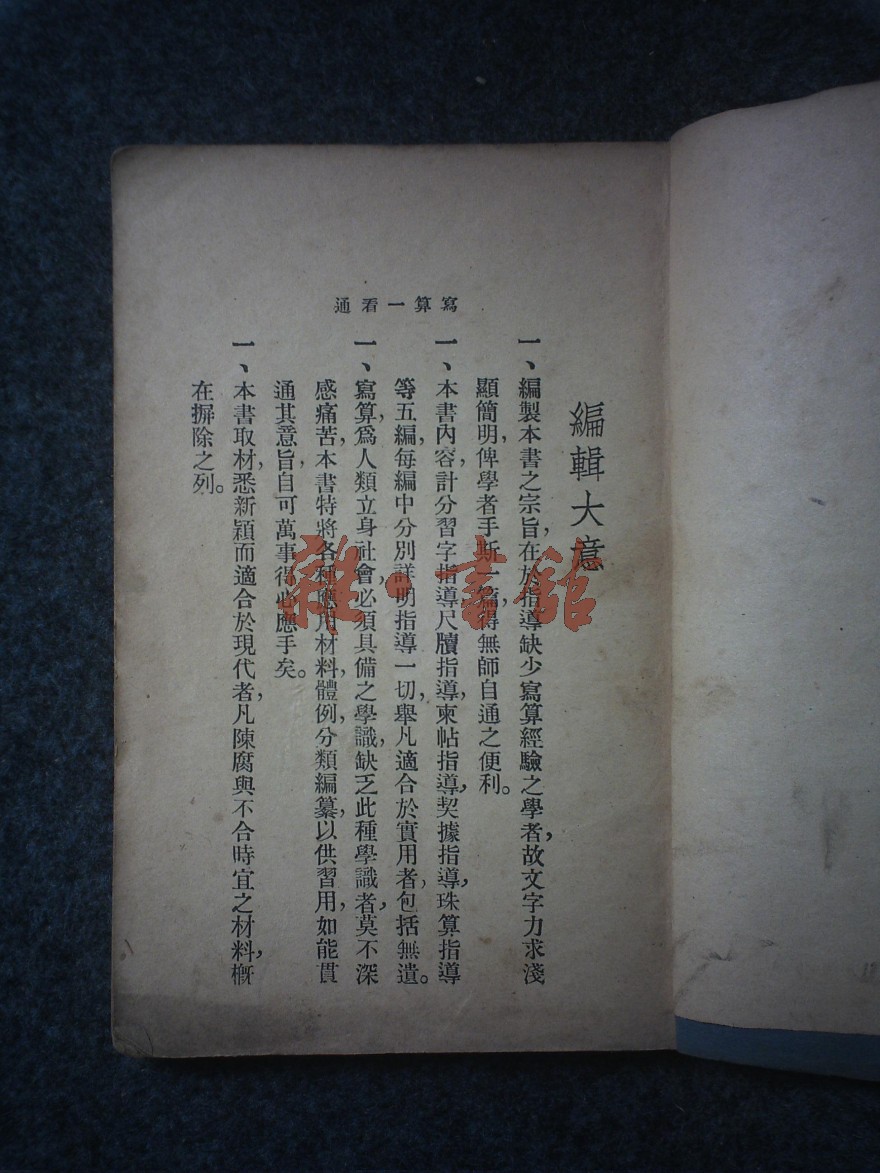 寫算一看通
編輯大意
一、編製本書之宗旨，在於指導缺少寫算經驗之學者，故文字力求淺
顯簡明，俾學者手斯一篇，得無師自通之便利。
一、本書內容，計分習字指導，尺牘指導，柬帖指導，契據指導，珠算指導
等五編，每編中分別詳明指導一切，舉凡適合於實用者，包括無遺。
一、寫算，爲人類立身社會，必須具備之學識，缺乏此種學識者，莫不深
感痛苦，本書特將各種應用材料，體例，分類編纂，以供習用，如能貫
通其意旨，自可萬事得心應手矣。
一、本書取材，悉新穎而適合於現代者，凡陳腐與不合時宜之材料，槪
在摒除之列。
雜·書館